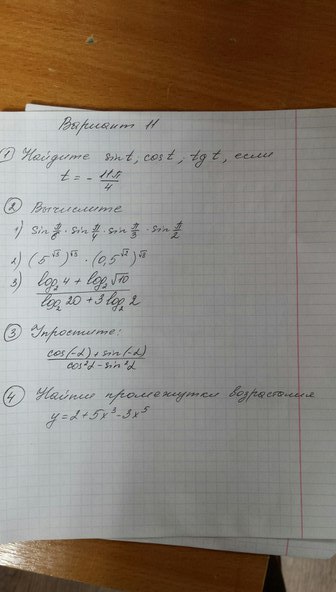 Вариант 11
① Найдите sin t, cos t, tg t, если
t = - 11π/4
② Вычислите
1) sin π/6 · sin π/4 · sin π/3 · sin π/2
2) (5^√3)^√3 · (0,5^√3)^√3
3) (log₂4 + log₂√10) / (log₂20 + 3log₂2)
③ Упростите:
(cos(-α) + sin(-α)) / (cos²α - sin²α)
④ Найти промежутки возрастания
y = 2 + 5x³ - 3x⁵